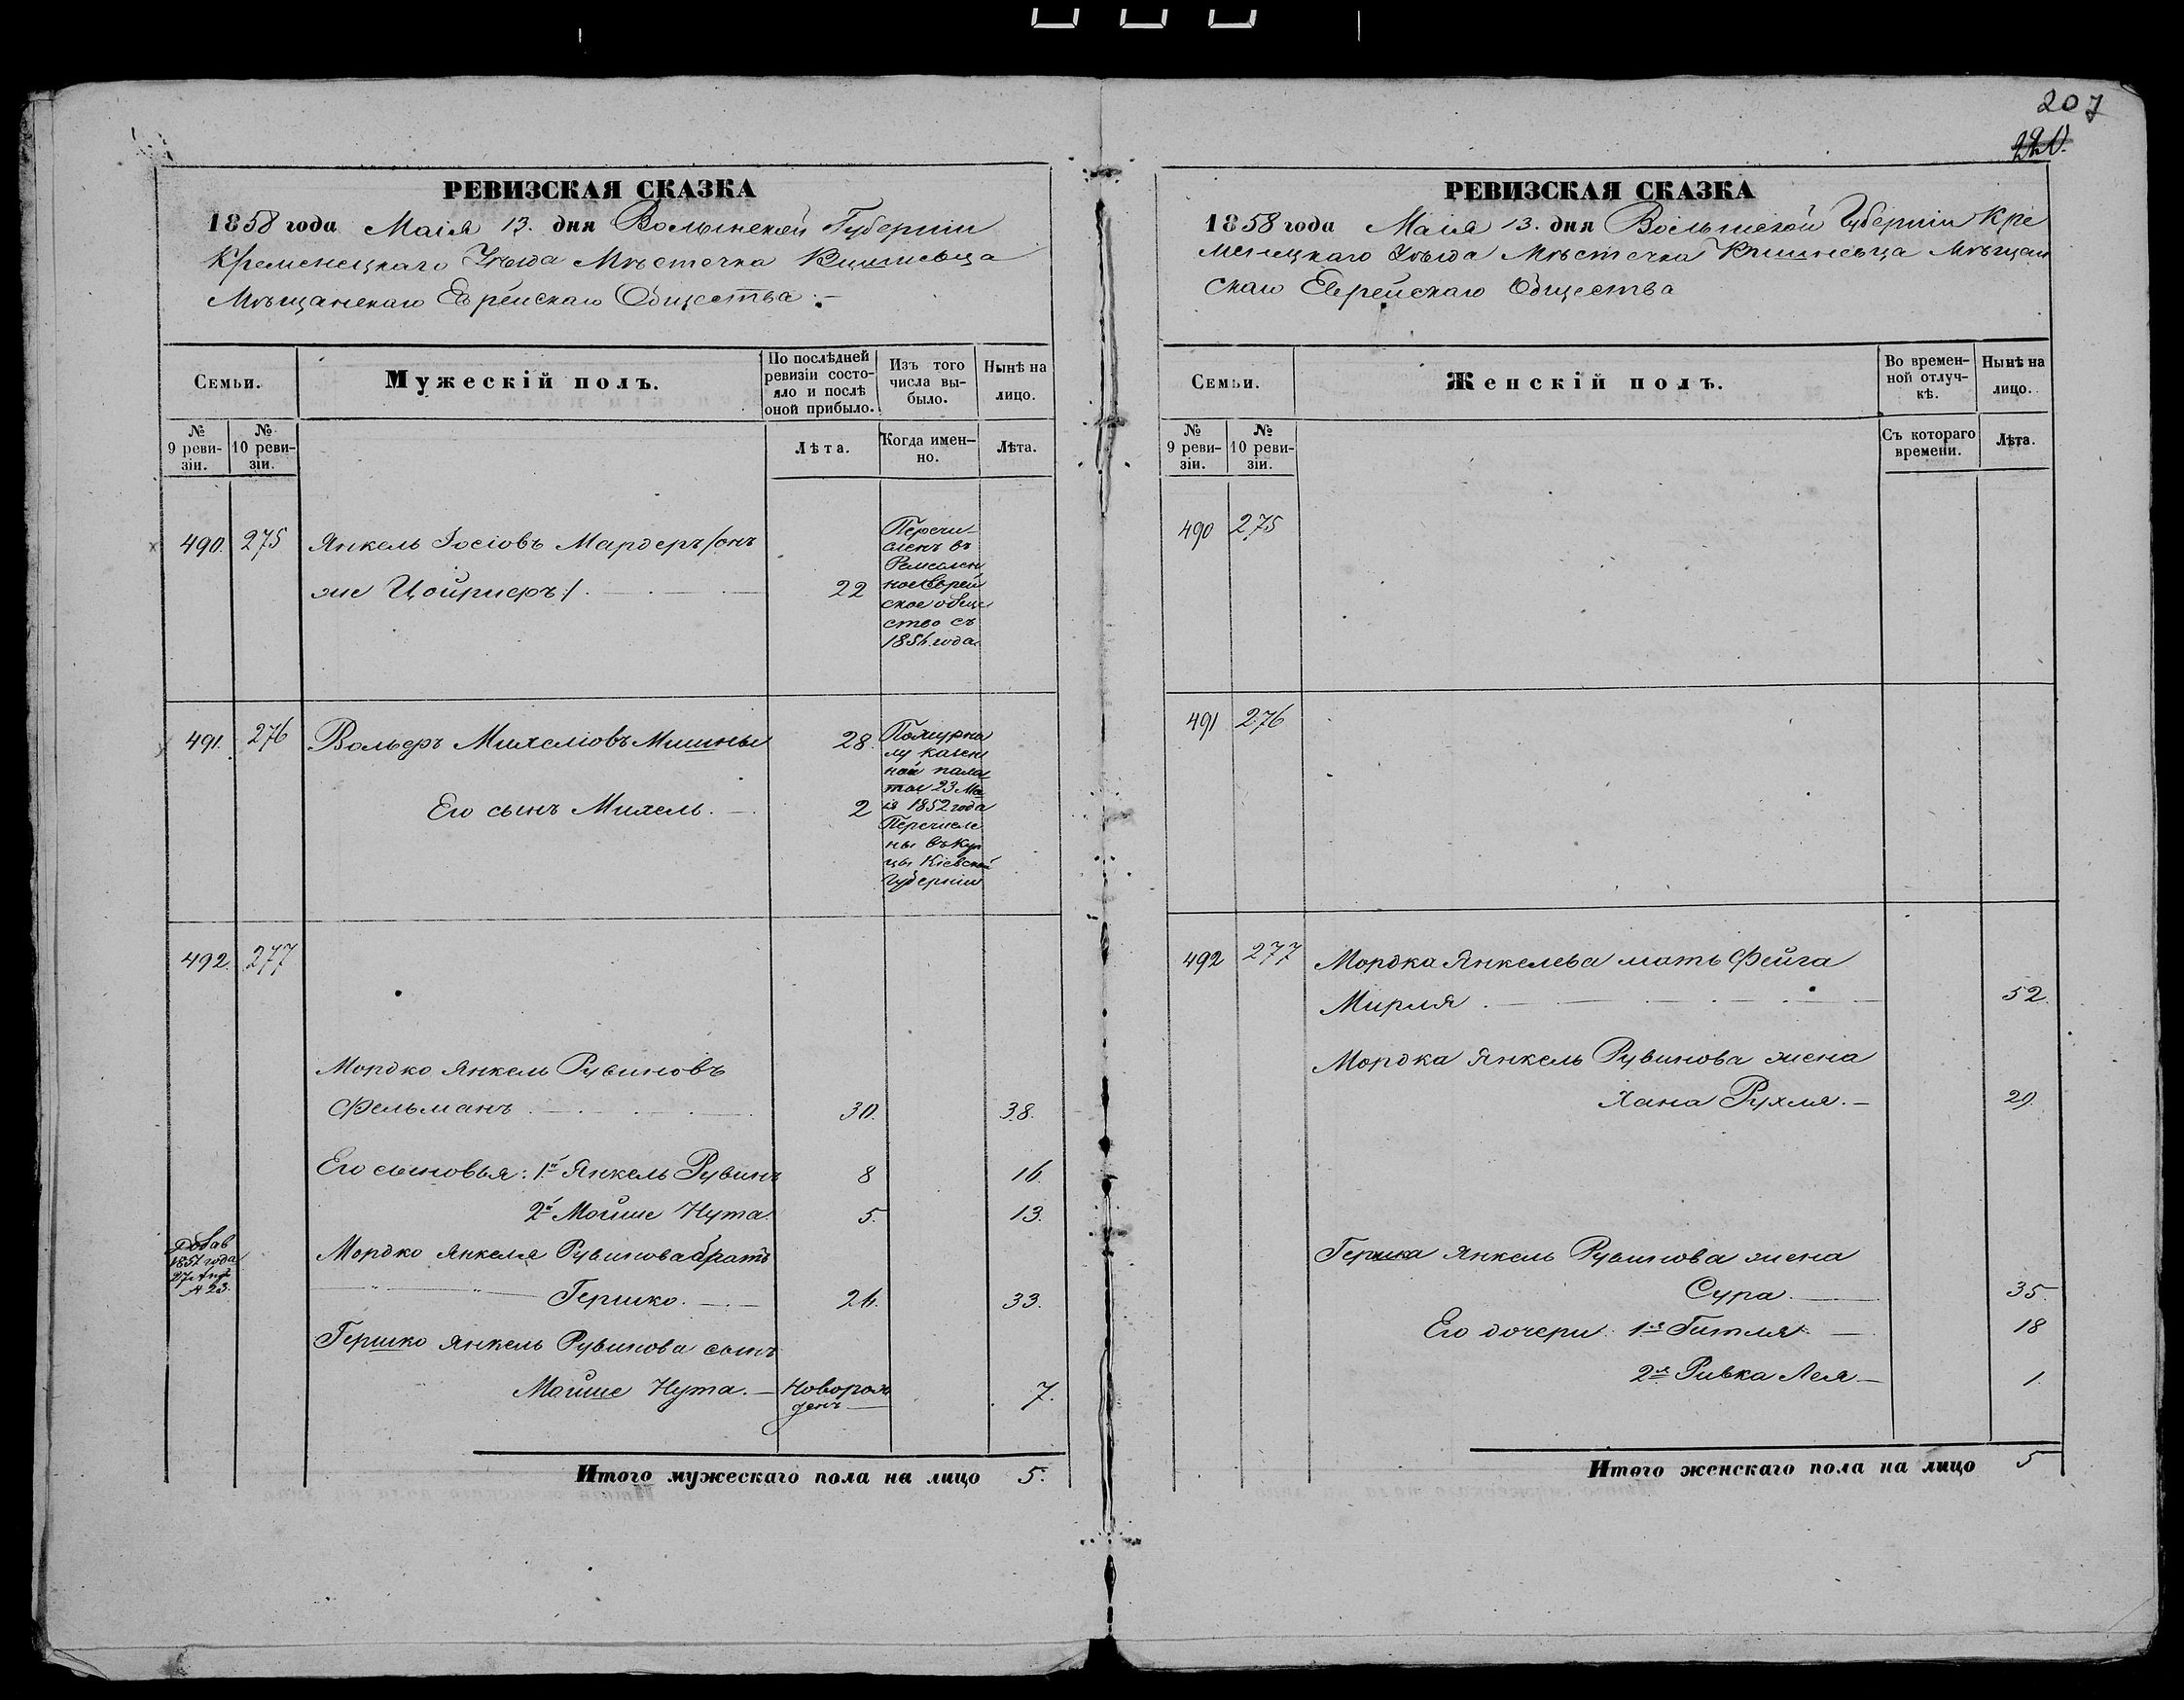 207
РЕВИЗСКАЯ СКАЗКА
1858 года Маія 13. дня Волынской Губерніи
Кременецкаго Уѣзда Мѣстечка Вишневца
Мѣщанскаго Еврейскаго Общества
Семьи.
Мужескій полъ.
По послѣдней ревизіи состояло и послѣ оной прибыло.
Изъ того числа выбыло.
Нынѣ на лицо.
№ 9 ревизіи.
№ 10 ревизіи.
Лѣта.
Когда именно.
Лѣта.
490. 275 Янкель Іосіовъ Мардеръ /онъ
же Цойрнеръ/ 22
Перечи-
сленъ въ
Ремеслен
ное Еврей
ское обще
ство съ
года
491. 276 Вольфъ Михеліовъ 28.
Его сынъ Михель. 2
По журна
лу казен
ной пала
ты 23 Ма
ія 1852 года
Перечисле
ны въ куп
цы Кіевской
Губерніи
492. 277
Мордко Янкель Рувиновъ
Фельманъ 30. 38.
Его сыновья: 1й Янкель Рувинъ 8 16.
2й Мойше Нута. 5. 13.
Добав
1851 года
27
№ 23.
Мордко Янкеля Рувинова братъ
Гершко. 26. 33.
Гершко Янкель Рувинова сынъ
Мойше Нута. Новорож
денъ 7.
Итого мужескаго пола на лицо 5.
РЕВИЗСКАЯ СКАЗКА
1858 года Маія 13. дня Волынской Губерніи Кре
менецкаго Уѣзда Мѣстечка Вишневца Мѣщан
скаго Еврейскаго Общества
Семьи.
Женскій полъ.
Во временной отлучкѣ.
Нынѣ на лицо.
№ 9 ревизіи.
№ 10 ревизіи.
Съ котораго времени.
Лѣта.
490 275
491 276
492 277 Мордка Янкелева мать Фейга
Мирля 52.
Мордка Янкель Рувинова жена
Хана Рухля. 29.
Гершка Янкель Рувинова жена
Сура 35.
Его дочери: 1я Гитля 18
2я Ривка Лея 1.
Итого женскаго пола на лицо 5